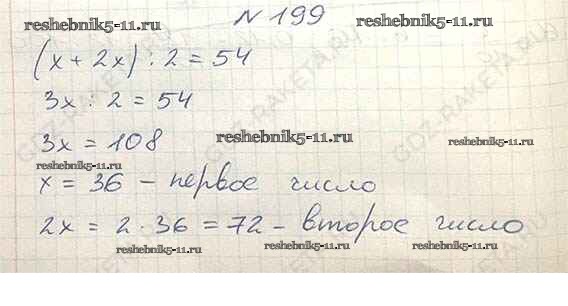 N 199
reshebnik5-11.ru reshebnik5-11.ru
(x + 2x) : 2 = 54
3x : 2 = 54
reshebnik5-11.ru
3x = 108
reshebnik5-11.ru reshebnik5-11.ru
reshebnik5-11.ru
x = 36 - первое число
2x = 2 · 36 = 72 - второе число
reshebnik5-11.ru reshebnik5-11.ru
GDZ-RAKETA.RU
GDZ-RAKETA.RU
GDZ-RAKETA.RU